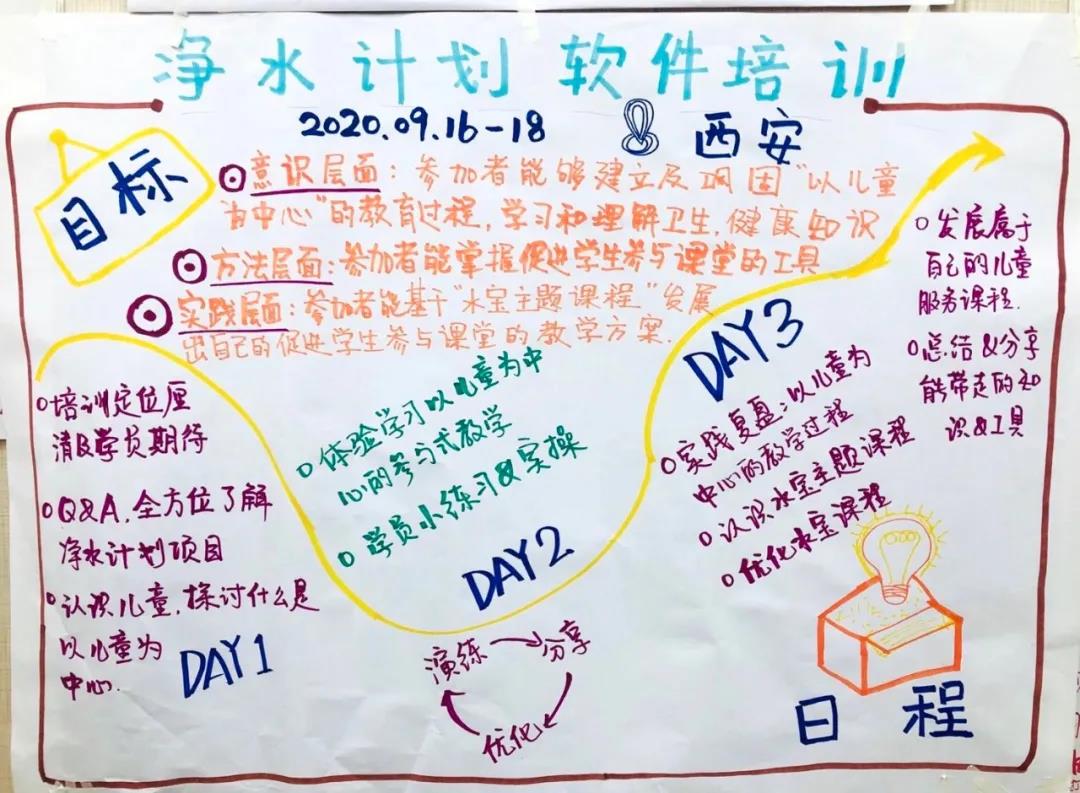 净水计划 软件培训
2020.09.16-18 西安
目标
意识层面：参加者能够建立及巩固“以儿童
为中心”的教育过程，学习和理解卫生，健康知识
方法层面：参加者能掌握促进学生参与课堂的工具
实践层面：参加者能基于“水宝主题课程”发展
出自己的促进学生参与课堂的教学方案.
培训定位厘
清及学员期待
Q&A，全方位了解
净水计划项目
认识儿童，探讨什么是
以儿童为
中心.
DAY1
体验学习以儿童为中
心的参与式教学
学员小练习&实操
DAY2
演练
分享
优化
DAY3
实践复盘：以儿童为
中心的教学过程
认识水宝主题课程
优化水宝课程
发展属于
自己的儿童
服务课程.
总结&分享
能带走的知
识&工具
日程